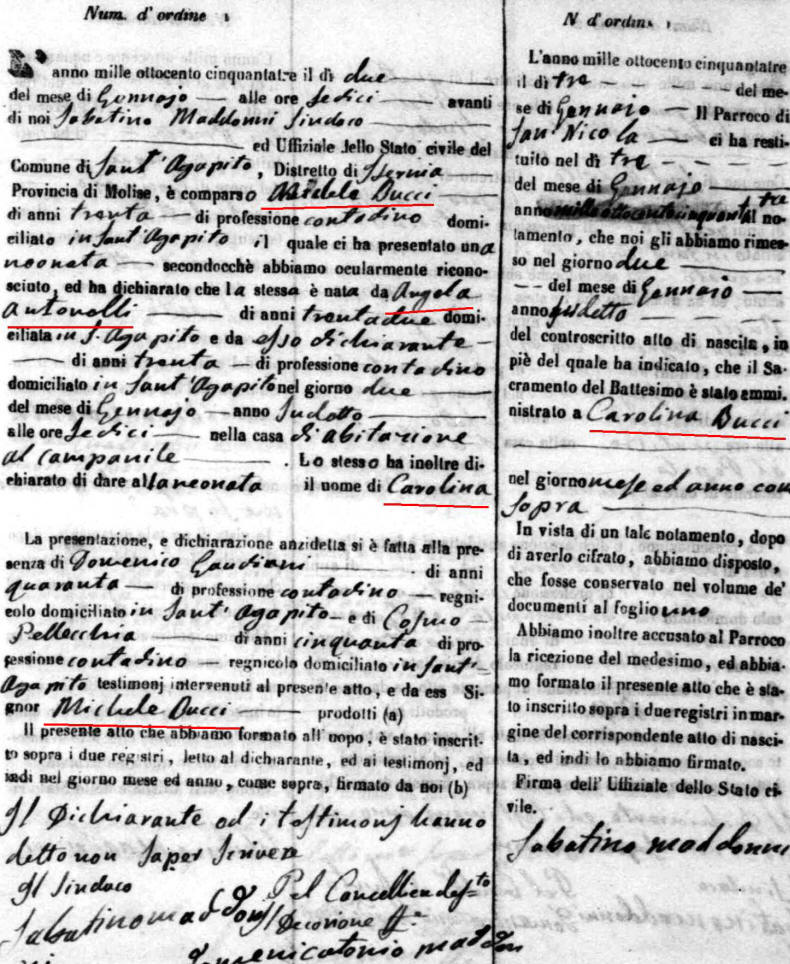 Num. d' ordine
L' anno mille ottocento cinquantatre il dì due
del mese di Gennajo — alle ore sedici — avanti
di noi Sabatino Maddonni Sindaco
ed Uffiziale dello Stato civile del
Comune di Sant' Agapito, Distretto di Isernia
Provincia di Molise, è comparso Michele Bucci
di anni trenta — di professione contadino domi-
ciliato in Sant' Agapito il quale ci ha presentato una
neonata — secondocchè abbiamo ocularmente ricono-
sciuto, ed ha dichiarato che la stessa è nata da Angela
Antonelli — di anni trentadue domi-
ciliata in S. Agapito e da esso dichiarante —
— di anni trenta — di professione contadino
domiciliato in Sant' Agapito nel giorno due —
del mese di Gennajo — anno sudetto
alle ore sedici — nella casa di abitazione
al campanile — . Lo stesso ha inoltre di-
chiarato di dare alla neonata il nome di Carolina
La presentazione, e dichiarazione anzidetta si è fatta alla pre-
senza di Domenico Gaudiani — di anni
quaranta — di professione contadino — regni-
colo domiciliato in Sant' Agapito — e di Cosmo
Pellecchia — di anni cinquanta di pro-
fessione contadino — regnicolo domiciliato in Sant'
Agapito testimonj intervenuti al presente atto, e da ess Si-
gnor Michele Bucci — prodotti (a)
Il presente atto che abbiamo formato all' uopo, è stato inscrit-
to sopra i due registri, letto al dichiarante, ed ai testimonj, ed
indi nel giorno mese ed anno, come sopra, firmato da noi (b)
Il Dichiarante ed i testimonj hanno
detto non saper scrivere
Il Sindaco
Sabatino maddonni
Pel Cancelliere
Il Decurione
Domenicatonio maddon
N d' ordine
L'anno mille ottocento cinquantatre
il dì tre — del me-
se di Gennajo — Il Parroco di
San Nicola — ci ha resti-
tuito nel dì tre —
del mese di Gennajo —
anno mille ottocento cinquantatre il no-
tamento, che noi gli abbiamo rimes-
so nel giorno due —
— del mese di Gennajo —
anno sudetto
del controscritto atto di nascita, in
piè del quale ha indicato, che il Sa-
cramento del Battesimo è stato ammi-
nistrato a Carolina Bucci
nel giorno mese ed anno com
sopra —
In vista di un tale notamento, dopo
di averlo cifrato, abbiamo disposto,
che fosse conservato nel volume de'
documenti al foglio uno
Abbiamo inoltre accusato al Parroco
la ricezione del medesimo, ed abbia-
mo formato il presente atto che è sta-
to inscritto sopra i due registri in mar-
gine del corrispondente atto di nasci-
ta, ed indi lo abbiamo firmato.
Firma dell' Uffiziale dello Stato ci-
vile.
Sabatino maddonni